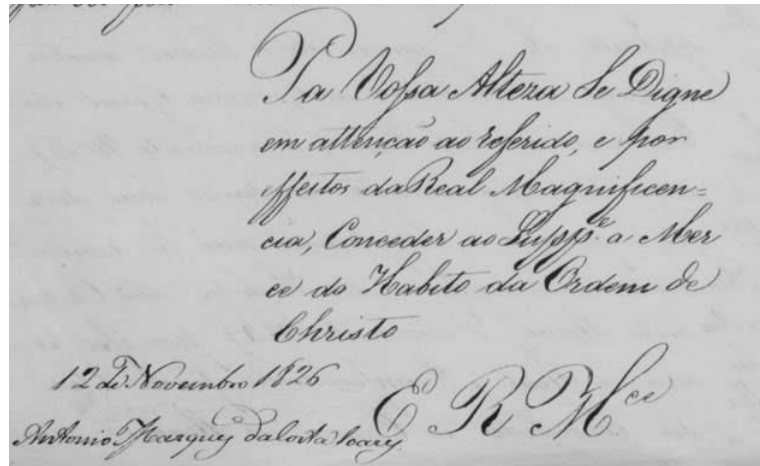 Pa Vossa Alteza Se Digne
em attenção ao referido, e por
effeitos da Real Magnificen=
cia, Conceder ao Supp.e a Mer
ce do Habito da Ordem de
Christo
12 de Novembro 1826
E R M.ce
Antonio Marques da Costa